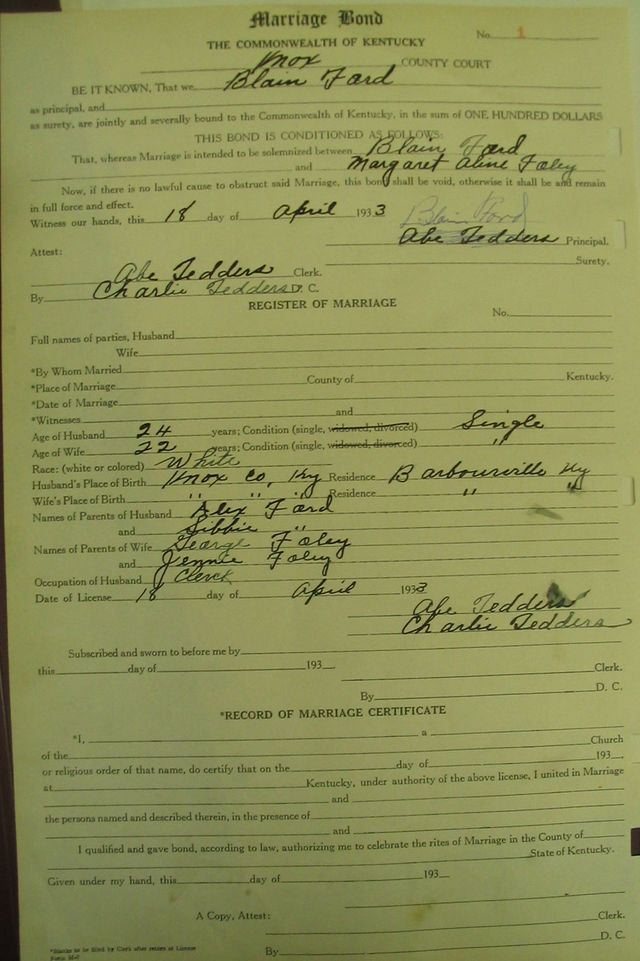 Marriage Bond
No. 1
THE COMMONWEALTH OF KENTUCKY
Knox COUNTY COURT
BE IT KNOWN, That we Blain Ford
as principal, and
as surety, are jointly and severally bound to the Commonwealth of Kentucky, in the sum of ONE HUNDRED DOLLARS
THIS BOND IS CONDITIONED AS FOLLOWS:
That, whereas Marriage is intended to be solemnized between Blain Ford
and Margaret Aline Foley
Now, if there is no lawful cause to obstruct said Marriage, this bond shall be void, otherwise it shall be and remain
in full force and effect.
Witness our hands, this 18 day of April 1933 Blain Ford
Abe Tedders Principal.
Attest: Surety.
Abe Tedders Clerk.
By Charlie Tedders D. C.
REGISTER OF MARRIAGE
No.
Full names of parties, Husband
Wife
*By Whom Married
*Place of Marriage County of Kentucky.
*Date of Marriage
*Witnesses and
Age of Husband 24 years; Condition (single, widowed, divorced) Single
Age of Wife 22 years; Condition (single, widowed, divorced) "
Race: (white or colored) White
Husband's Place of Birth Knox Co, Ky Residence Barbourville Ky
Wife's Place of Birth " " " Residence " "
Names of Parents of Husband Alex Ford
and Sibbie "
Names of Parents of Wife George Foley
and Jennie Foley
Occupation of Husband Clerk
Date of License 18 day of April 1933
Abe Tedders
Charlie Tedders
Subscribed and sworn to before me by
this day of 193 Clerk.
By D. C.
*RECORD OF MARRIAGE CERTIFICATE
*I, a
of the Church
or religious order of that name, do certify that on the day of 193 ,
at Kentucky, under authority of the above license, I united in Marriage
and
the persons named and described therein, in the presence of
and
I qualified and gave bond, according to law, authorizing me to celebrate the rites of Marriage in the County of
State of Kentucky.
Given under my hand, this day of 193
A Copy, Attest: Clerk.
*Blanks to be filled by Clerk after return of License
Form M-6 By D. C.